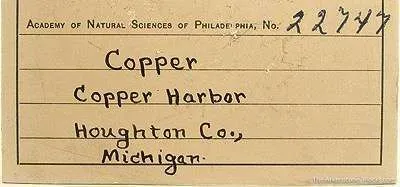 Academy of Natural Sciences of Philadelphia, No. 22747
Copper
Copper Harbor
Houghton Co.,
Michigan.